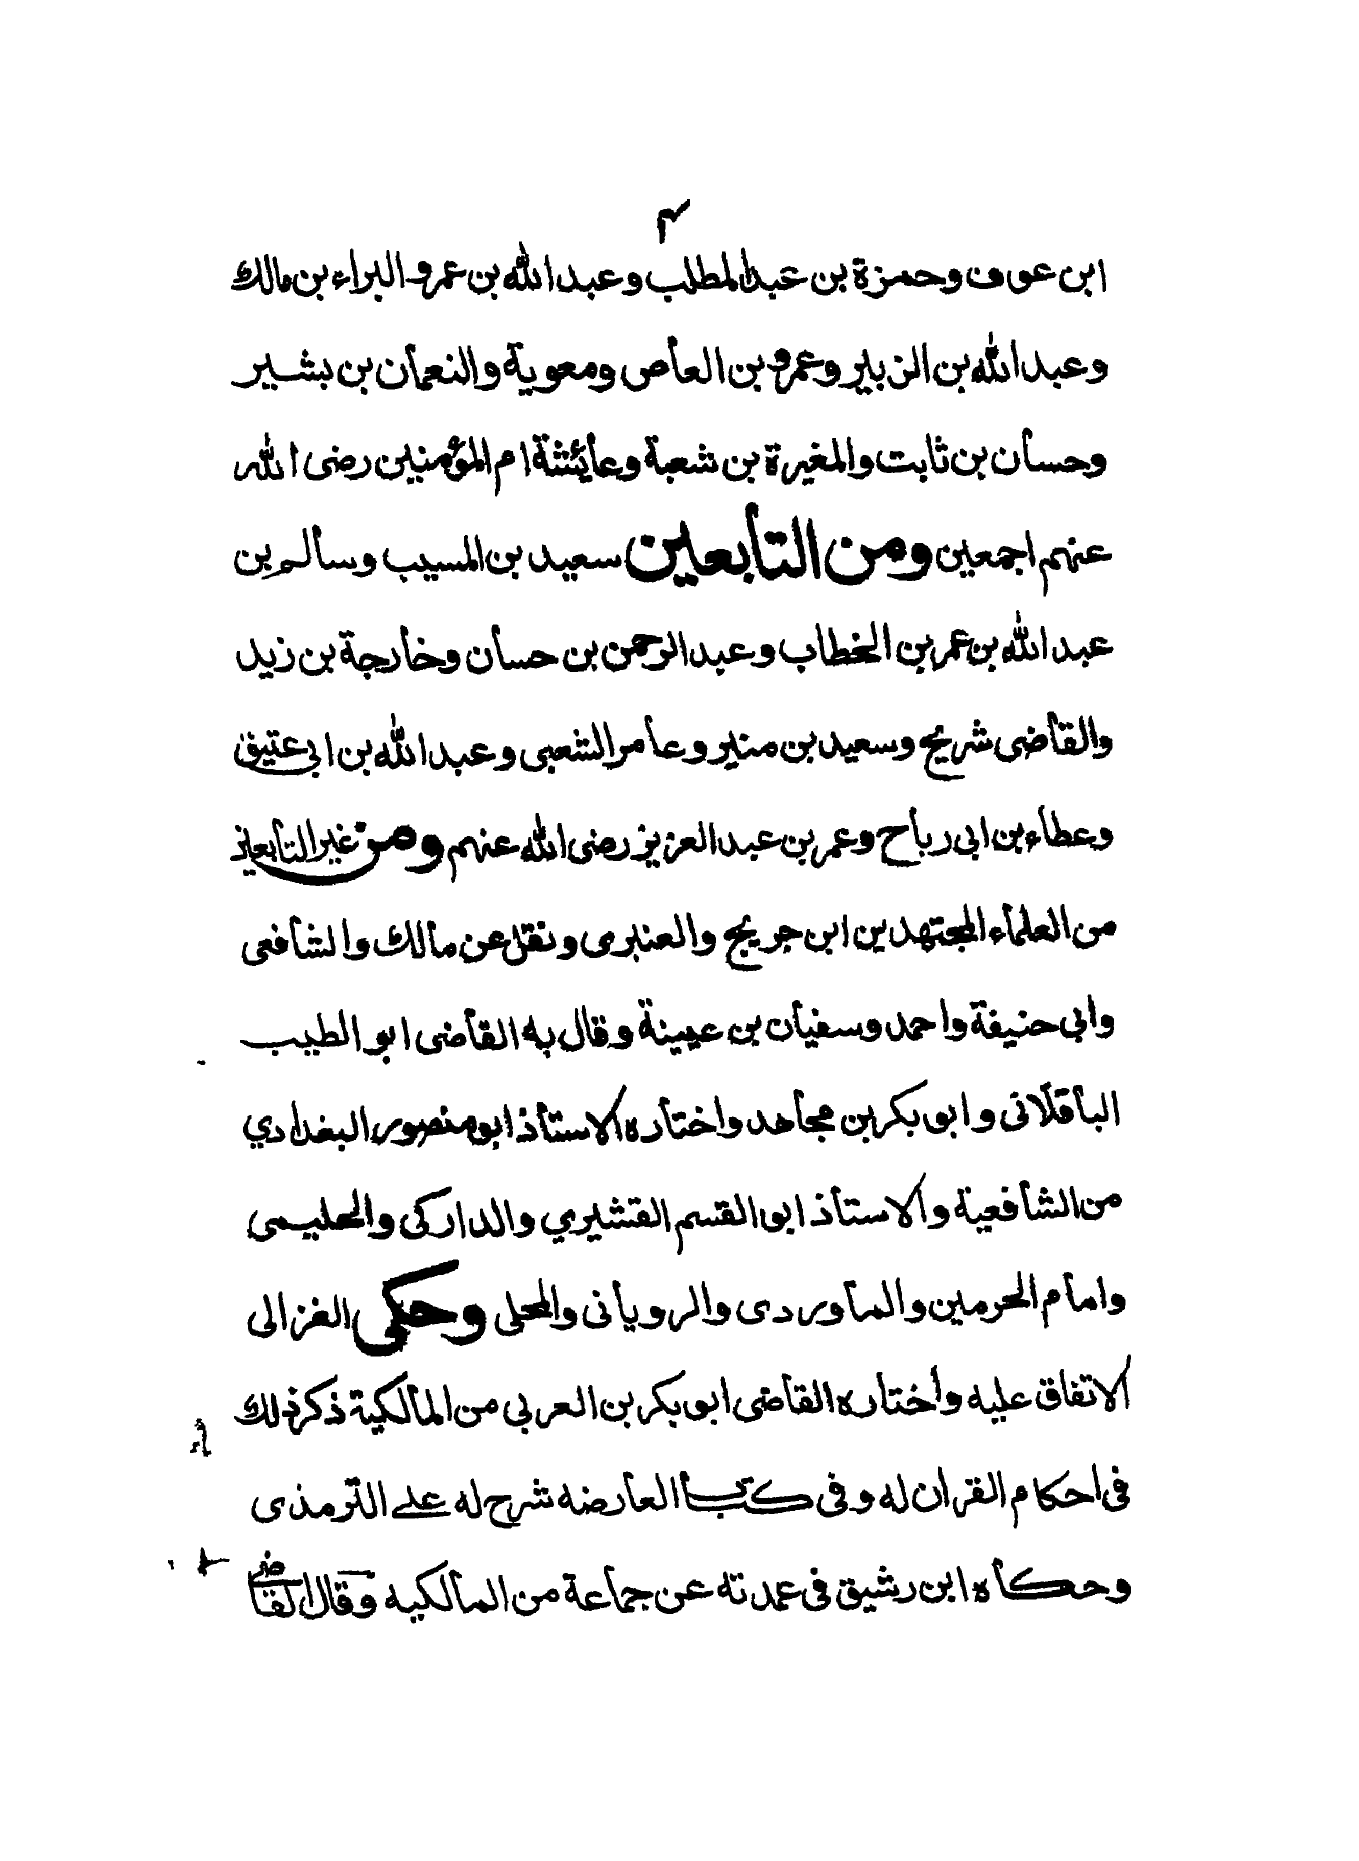 ابن عوف وحمزة بن عبدالمطلب وعبد الله بن عمرو البراء بن مالك
وعبد الله بن الزبير وعمرو بن العاص ومعوية والنعمان بن بشير
وحسان بن ثابت والمغيرة بن شعبة وعائشة ام المؤمنين رضى الله
عنهم اجمعين ومن التابعين سعيد بن المسيب وسالم بن
عبد الله بن عمر بن الخطاب وعبد الرحمن بن حسان وخارجة بن زيد
والقاضى شريح وسعيد بن منير وعامر الشعبى وعبد الله بن ابي عتيق
وعطاء بن ابى رباح وعمر بن عبد العزيز رضى الله عنهم ومن غير التابعين
من العلماء المجتهدين ابن جريج والعنبرى ونقل عن مالك والشافعى
وابي حنيفة واحمد وسفيان بن عيينة وقال به القاضى ابو الطيب
الباقلانى وابو بكر بن مجاهد واختاره الاستاذ ابو منصور البغدادي
من الشافعية والاستاذ ابو القسم القشيري والداركى والحليمى
وامام الحرمين والماوردى والروياني والمحلى وحكى الغزالى
الاتفاق عليه وأختاره القاضى ابو بكر بن العربي من المالكية ذكر ذلك
فى احكام القران له وفى كتاب العارضه شرح له على الترمذى
وحكاه ابن رشيق فى عمدته عن جماعة من المالكيه وقال القاضى